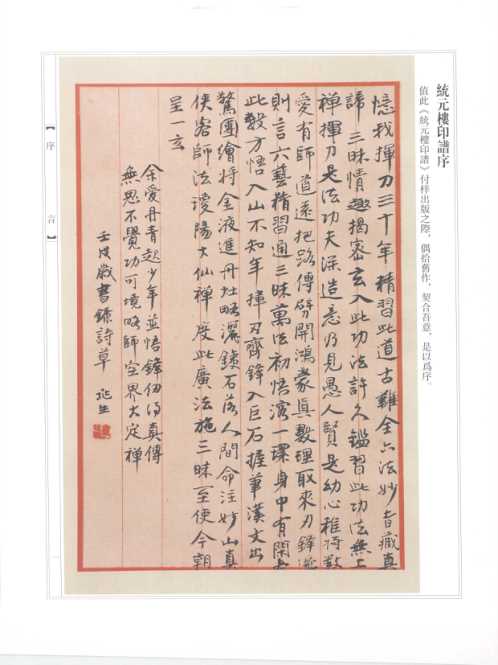 統元樓印譜序
值此《統元樓印譜》付梓出版之際，偶拾舊作，契合吾意，是以爲序。
憶我揮刀三十年精習此道古難全六法妙旨藏真
諦三昧情趣揭密玄入此功法許久鑑習此功法無上
禪揮刀是法功夫深造意乃見愚人賢是幼心稚将数
愛有師道遠把路傳劈開鴻蒙真數理取來刀鋒
則言六藝精習通三昧萬法初悟落一環身中有閑
此数方悟入山不知年揮刃齊鋒入巨石握筆漢文出
驚圖繪将金液進丹灶略灑鍊石落人間命注妙山真
俠客師法瓊陽大仙禪度此廣法施三昧至使今朝
呈一玄
余愛丹青起少年並悟鋒仞得真傳
無思不覺功可境略師空界大定禪
壬戌歲書錄詩草
【序
言】